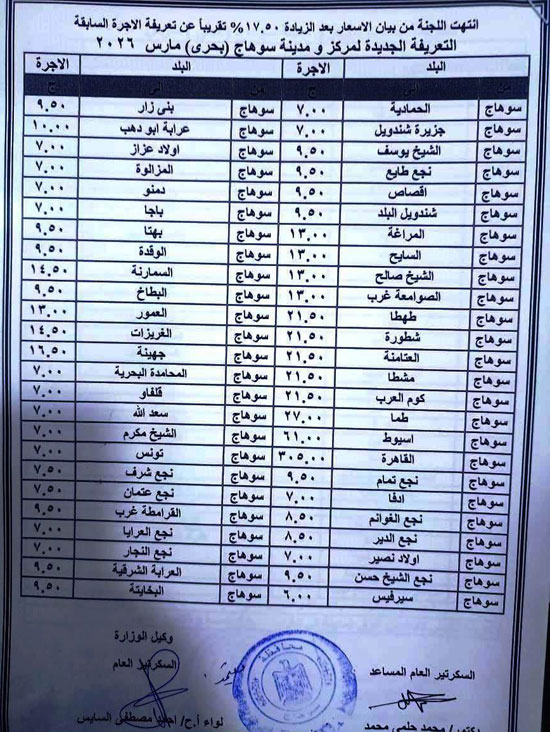 انتهت اللجنة من بيان الاسعار بعد الزيادة ١٧.٥٠% تقريباً عن تعريفة الاجرة السابقة
التعريفة الجديدة لمركز و مدينة سوهاج (بحرى) مارس ٢٠٢٦
البلد الاجرة البلد الاجرة
من الى ج من الى ج
سوهاج الحمادية ٧.٠٠ سوهاج بنى زار ٩.٥٠
سوهاج جزيرة شندويل ٧.٠٠ سوهاج عرابة ابو دهب ١٠.٠٠
سوهاج الشيخ يوسف ٩.٥٠ سوهاج اولاد عزاز ٧.٠٠
سوهاج نجع طايع ٩.٥٠ سوهاج المزالوة ٧.٠٠
سوهاج اقصاص ٩.٥٠ سوهاج دمنو ٧.٠٠
سوهاج شندويل البلد ٩.٥٠ سوهاج باجا ٧.٠٠
سوهاج المراغة ١٣.٠٠ سوهاج بهتا ٩.٥٠
سوهاج السايح ١٣.٠٠ سوهاج الوقدة ٩.٥٠
سوهاج الشيخ صالح ١٣.٠٠ سوهاج السمارنة ١٤.٥٠
سوهاج الصوامعة غرب ١٣.٠٠ سوهاج البطاخ ٩.٥٠
سوهاج طهطا ٢١.٥٠ سوهاج العمور ١٣.٠٠
سوهاج شطورة ٢١.٥٠ سوهاج الغريزات ١٤.٥٠
سوهاج العتامنة ٢١.٥٠ سوهاج جهينة ١٦.٥٠
سوهاج مشطا ٢١.٥٠ سوهاج المحامدة البحرية ٧.٠٠
سوهاج كوم العرب ٢١.٥٠ سوهاج قلفاو ٧.٠٠
سوهاج طما ٢٧.٠٠ سوهاج سعد الله ٧.٠٠
سوهاج اسيوط ٦١.٠٠ سوهاج الشيخ مكرم ٧.٠٠
سوهاج القاهرة ٣٠٥.٠٠ سوهاج تونس ٧.٠٠
سوهاج نجع تمام ٩.٥٠ سوهاج نجع شرف ٧.٥٠
سوهاج ادفا ٧.٠٠ سوهاج نجع عتمان ٧.٥٠
سوهاج نجع الغوانم ٨.٥٠ سوهاج القرامطة غرب ٩.٥٠
سوهاج نجع الدير ٨.٥٠ سوهاج نجع العرايا ٧.٠٠
سوهاج اولاد نصير ٧.٠٠ سوهاج نجع النجار ٧.٠٠
سوهاج نجع الشيخ حسن ٩.٥٠ سوهاج العرابة الشرقية ٩.٥٠
سوهاج سيرفيس ٦.٠٠ سوهاج البخايتة ٩.٥٠
وكيل الوزارة
السكرتير العام المساعد السكرتير العام
دكتور/ محمد حلمى محمد لواء أ.ح/ احمد مصطفى السايس